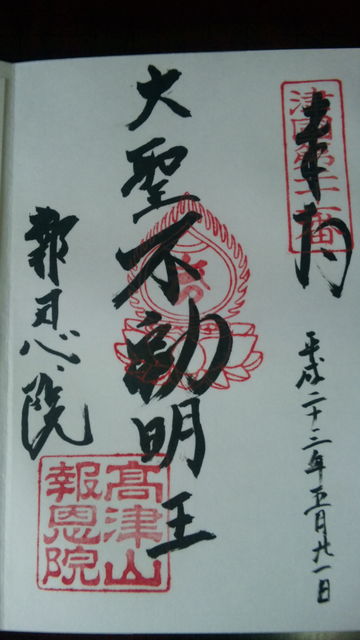 奉納
津國第
平成二十三年五月廿一日
大聖不動明王
報恩院
高津山
報恩院